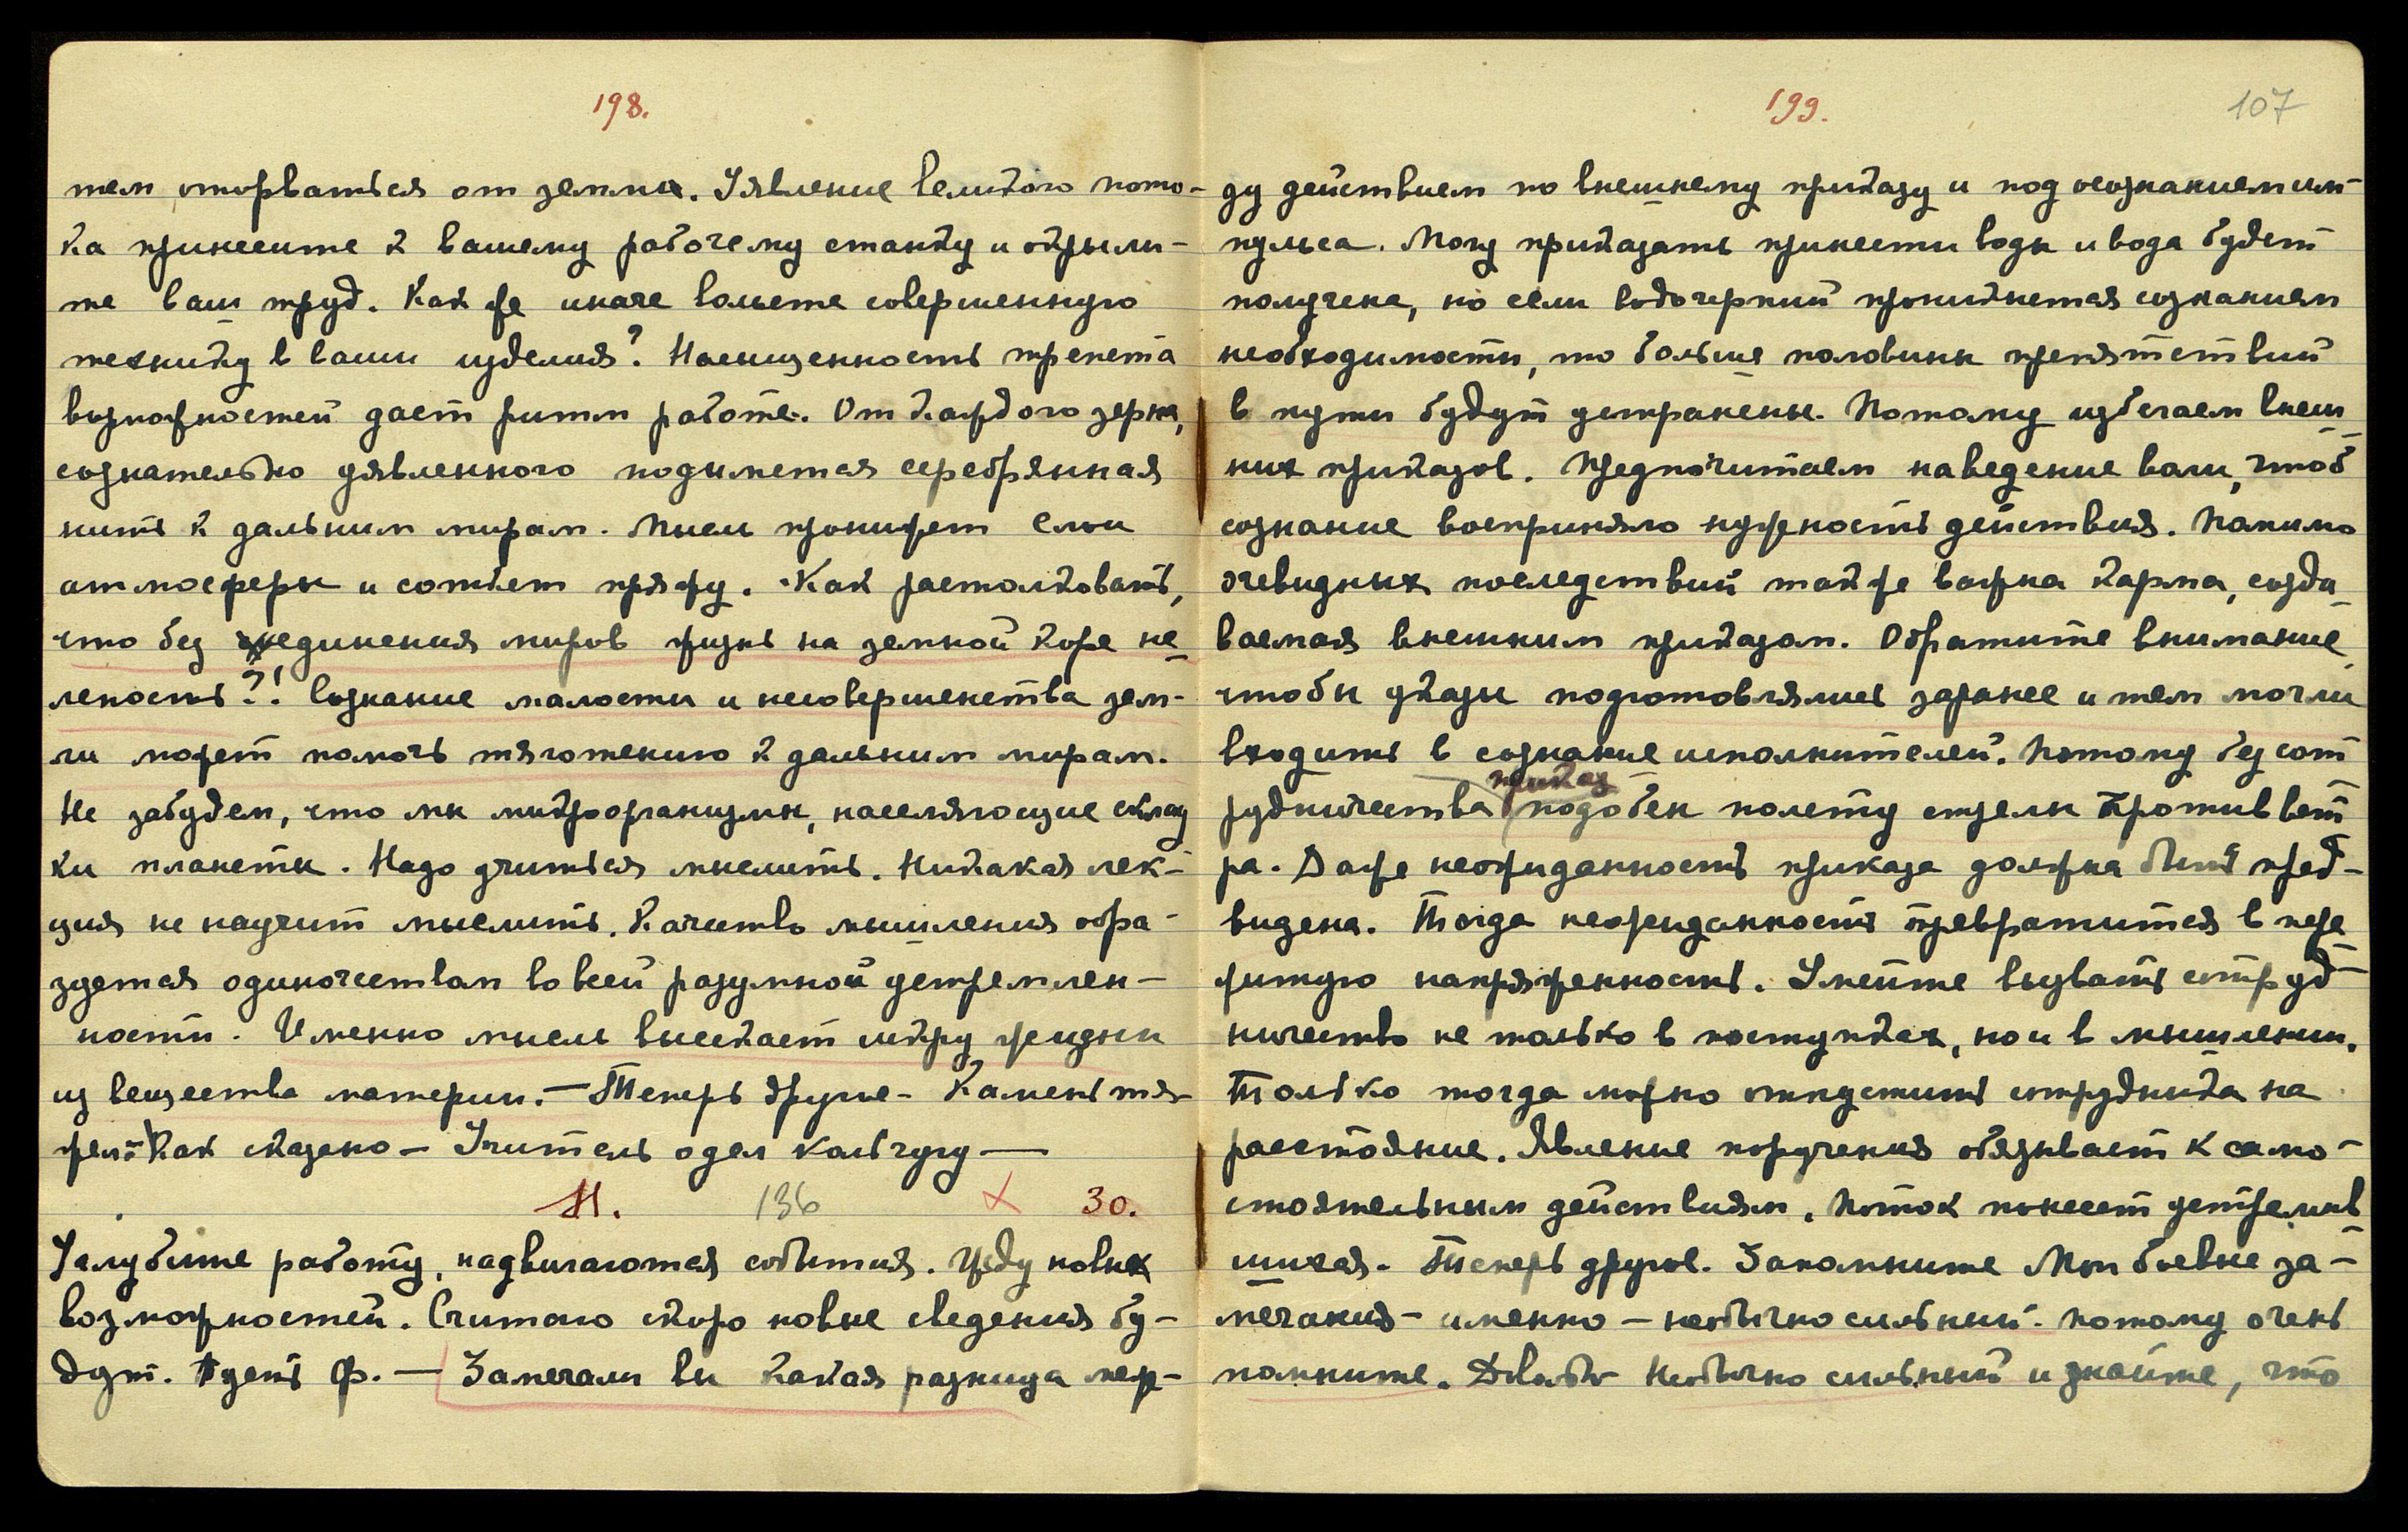 198.
тем оторваться от земли. Уявление великого пото-
ка принесите к вашему рабочему станку и окрыли-
те ваш труд. Как же иначе вольете совершенную
технику в ваши изделия? Насыщенность трепета
возможностей дает ритм работе. От каждого зерна,
сознательно уявленного подымется серебрянная
нить к дальним мирам. Мысль пронижет слои
атмосферы и соткет пряжу. Как растолковать,
что без единения миров жизнь на земной коре не-
лепость?! Сознание малости и несовершенства зем-
ли может помочь тяготению к дальним мирам.
Не забудем, что мы микроорганизмы, населяющие склад
ки планеты. Надо учиться мыслить. Никакая лек-
ция не научит мыслить. Качество мышления обра-
зуется одиночеством во всей разумной устремлен-
ности. Именно мысль высекает искру жизни
из вещества материи. — Теперь другое - Камень тя-
жел. Как сказано — Учитель одел кольчугу —
М. 136 × 30.
Углубите работу, надвигаются события. Жду новых
возможностей. Считаю скоро новые сведения бу-
дут. Ф. — Замечали вы какая разница меж-
199. 107
ду действием по внешнему приказу и под осознанием им-
пульса. Могу приказать принести воды и вода будет
получена, но если водочерпий проникнется сознанием
необходимости, то больше половины препятствий
в пути будут устранены. Потому избегаем внеш
них приказов. Предпочитаем наведение воли, чтоб
сознание восприняло нужность действия. Помимо
очевидных последствий также важна карма, созда
ваемая внешним приказом. Обратите внимание,
чтобы указы подготовлялись заранее и тем могли
входить в сознание исполнителей. Потому без сот
приказ
рудничества подобен полету стрелы против вет
ра. Даже неожиданность приказа должна быть пред-
видена. Тогда неожиданность превратится в пере
житую напряженность. Умейте вызвать сотруд-
ничество не только в поступках, но и в мышлении.
Только тогда можно отпустить сотрудника на
расстояние. Явление поручения обязывает к само-
стоятельным действиям. Поток понесет устремив
шихся. Теперь другое. Запомните Мои боевые за-
мечания — именно — необычно сильный. Потому очень
помните. Необычно сильный и знайте, что